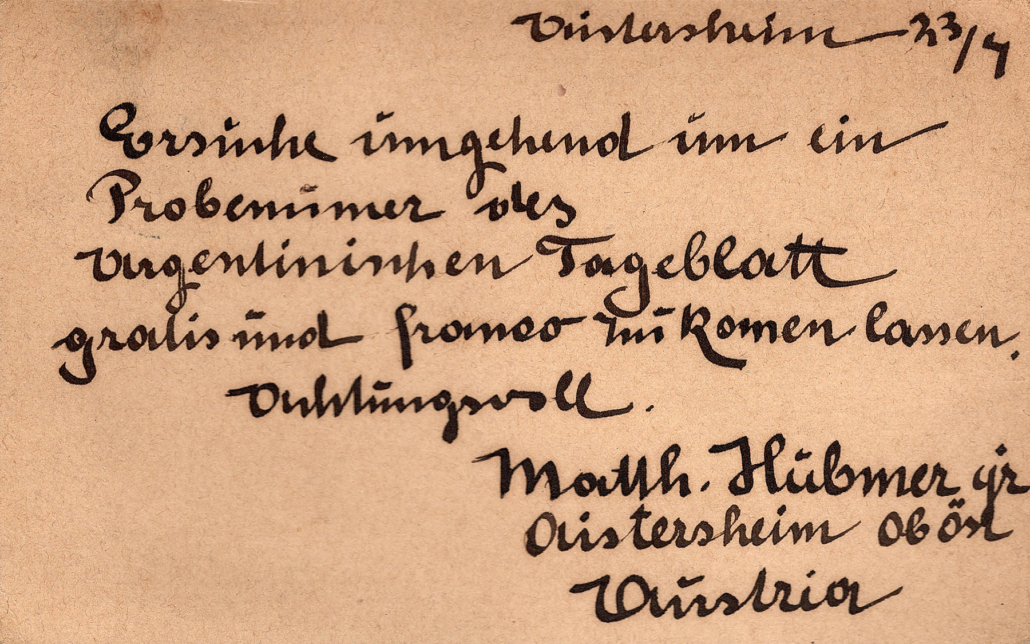 Aistersheim 23/4
Ersuche umgehend um ein
Probenumer des
Argentinischen Tageblatt
gratis und franco zu komen lassen.
Achtungsvoll.
Matth. Hübmer jr
Aistersheim Oböst
Austria